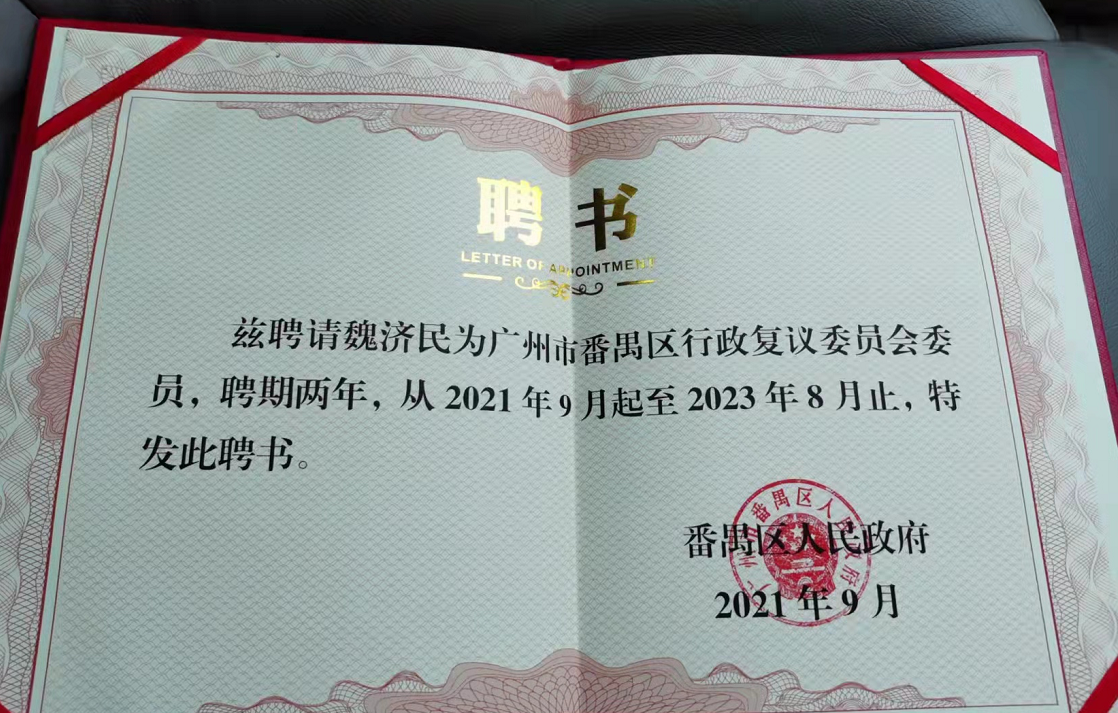 聘书
LETTER OF APPOINTMENT
兹聘请魏济民为广州市番禺区行政复议委员会委
员，聘期两年，从 2021 年 9 月起至 2023 年 8 月止，特
发此聘书。
广州市番禺区人民政府
番禺区人民政府
2021 年 9 月